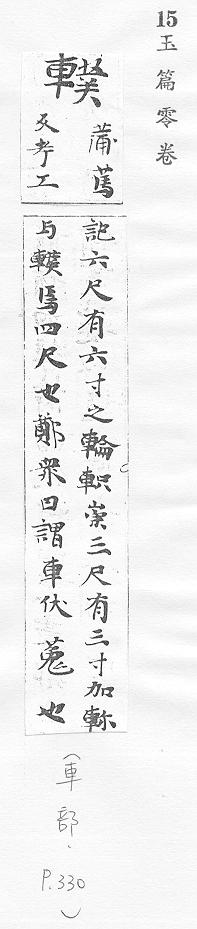 15玉篇零卷
轐
蒲篤
反考工
記六尺有六寸之輪軹崇三尺有三寸加軫
与轐焉四尺也鄭眾曰謂車伏菟也
(車部、P.330)